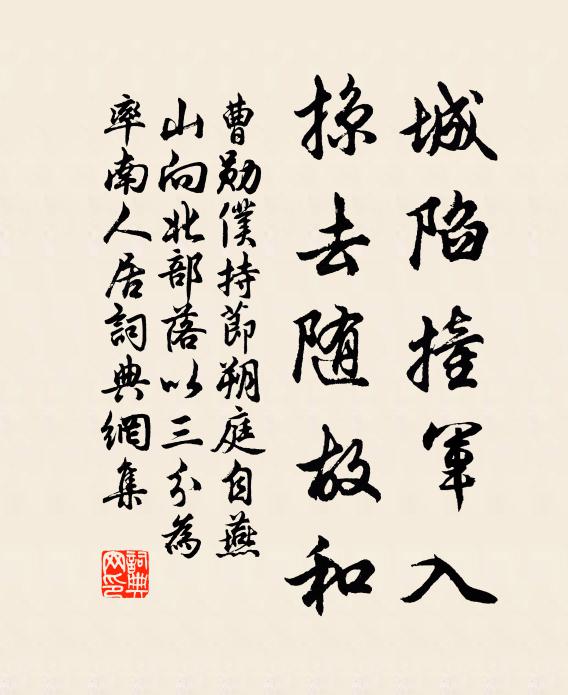 城陷撞军入
掠去随故和
曹勋僕持節朔庭自燕
山向北部落以三分為
率南人居詞典網集
詞典
网印